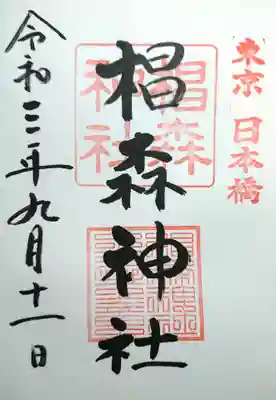 東京 日本橋
椙森神社
椙森
神社
令和三年九月十一日